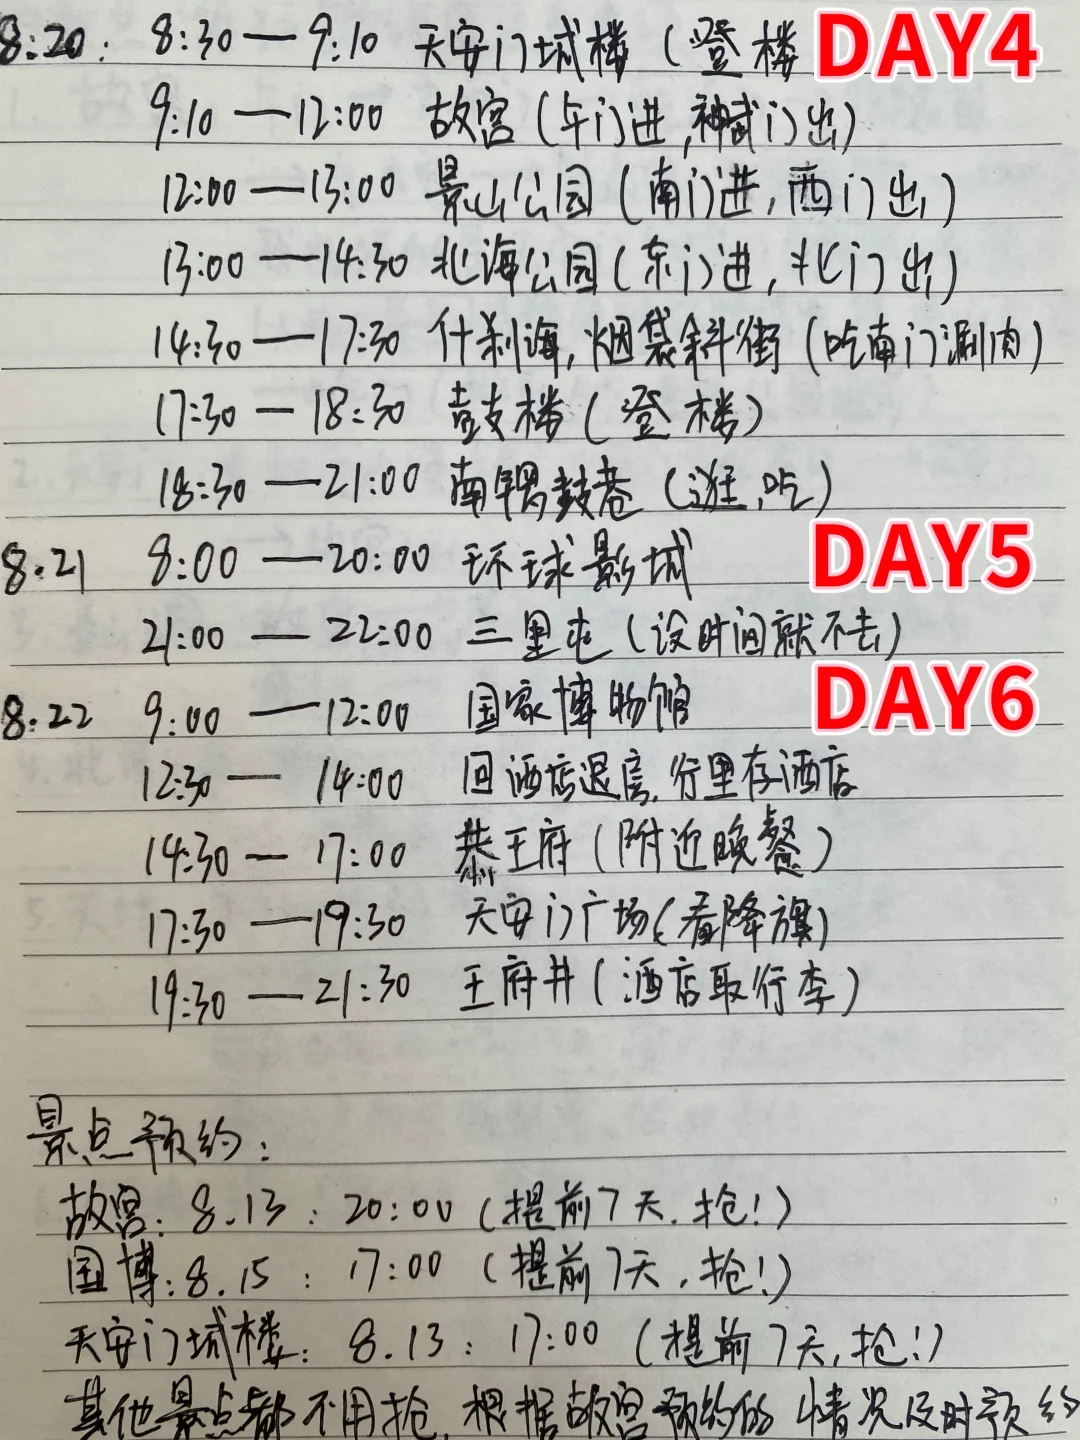 8:20: 8:30—9:10 天安门城楼（登楼 DAY4
9:10—12:00 故宫（午门进,神武门出）
12:00—13:00 景山公园（南门进,西门出）
13:00—14:30 北海公园（东门进,北门出）
14:30—17:30 什刹海,烟袋斜街（吃南门涮肉）
17:30—18:30 鼓楼（登楼）
18:30—21:00 南锣鼓巷（逛,吃）
8.21 8:00—20:00 环球影城 DAY5
21:00—22:00 三里屯（没时间就不去）
8.22 9:00—12:00 国家博物馆 DAY6
12:30—14:00 回酒店退房,行里存酒店
14:30—17:00 恭王府（附近晚餐）
17:30—19:30 天安门广场（看降旗）
19:30—21:30 王府井（酒店取行李）
景点预约:
故宫: 8.13: 20:00（提前7天.抢!）
国博: 8.15: 17:00（提前7天,抢!）
天安门城楼: 8.13: 17:00（提前7天,抢!）
其他景点都不用抢,根据故宫预约的情况及时预约